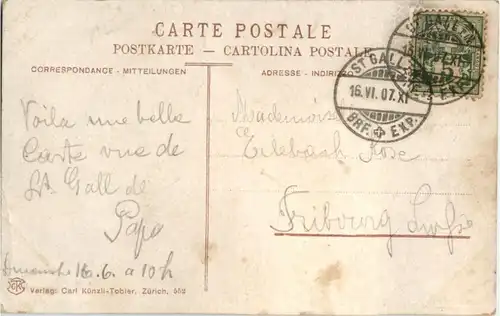 CARTE POSTALE
POSTKARTE - CARTOLINA POSTALE
CORRESPONDANCE - MITTEILUNGEN
ADRESSE - INDIRIZZO
ST GALLEN
16.VI.07.XI
BRF. EXP.
Voila une belle
Carte vue de
St. Gall de
Papa
Dimanche 16.6. a 10 h
Mademoiselle
Erlebach Rose
Fribourg
Verlag: Carl Künzli-Tobler, Zürich,